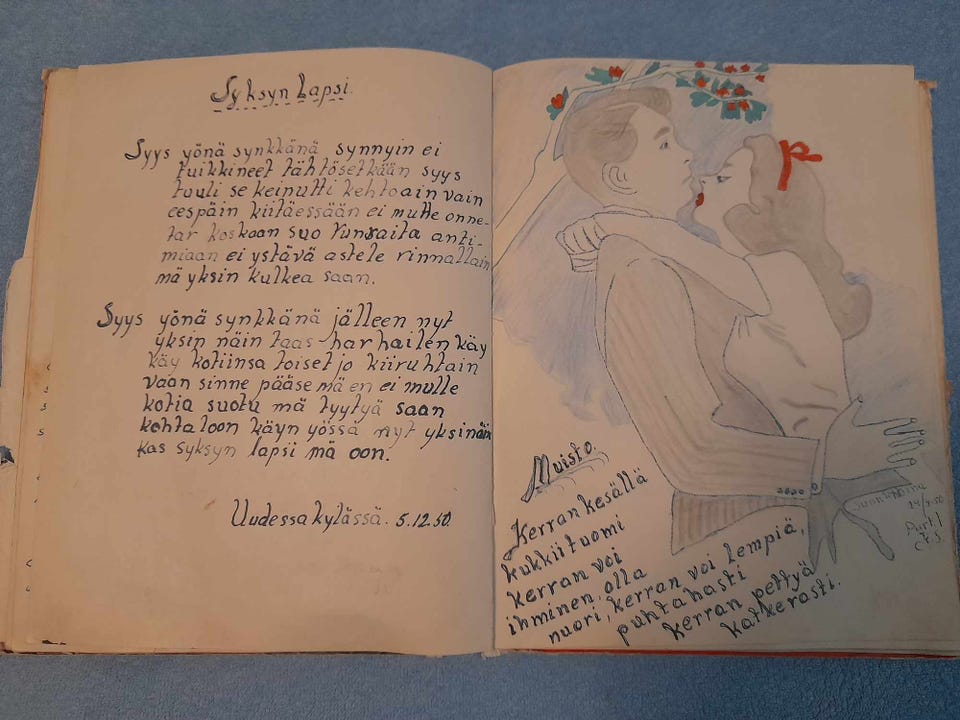 Syksyn Lapsi.
Syys yönä synkkänä synnyin ei
tuikkineet tähtösetkään syys
tuuli se keiputti kehtoain vain
eespäin kiitäessään ei mulle onne-
tar koskaan suo runsaita anti-
miaan ei ystävä astele rinnallain
mä yksin kulkea saan.
Syys yönä synkkänä jälleen nyt
yksin näin taas harhailen käy
käy kotiinsa toiset jo kiiruhtain
vaan sinne pääse mä en ei mulle
kotia suotu mä tyytyä saan
kohtaloon käyn yössä nyt yksinäin
kas syksyn lapsi mä oon.
Uudessakylässä. 5.12.50.
Muisto.
Kerran kesällä
kukkii tuomi
kerran voi
ihminen olla
nuori, kerran voi lempiä,
puhtahasti
kerran pettyä
katkerasti.